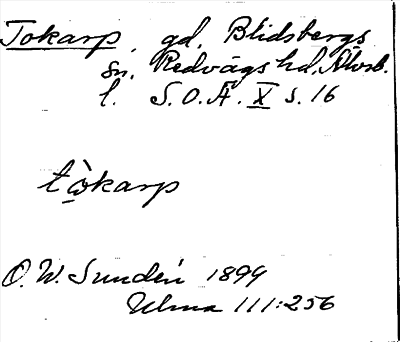 Tokarp, gd, Blidsbergs
sn, Redvägs hd, Älvsb.
l. S.O.Ä. X s. 16
tòkarp
O. W. Sundén 1899
Ulma 111:256